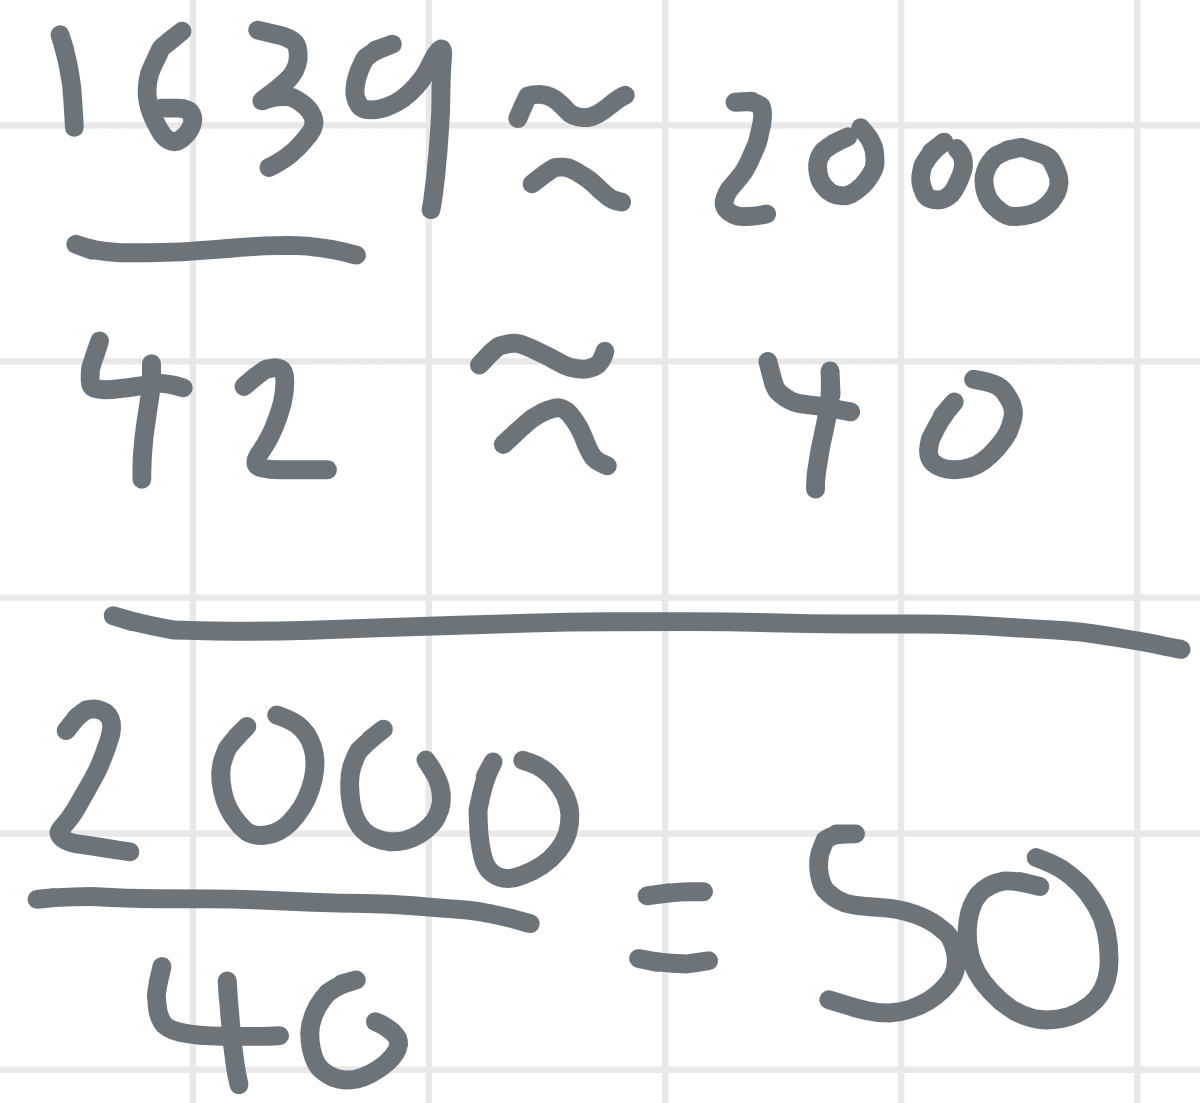 1639 ≈ 2000
42 ≈ 40
2000
40
= 50